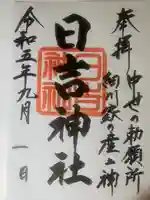 奉拝
中世の勅願所
柳川駅の産土神
日吉神社
令和五年九月一日